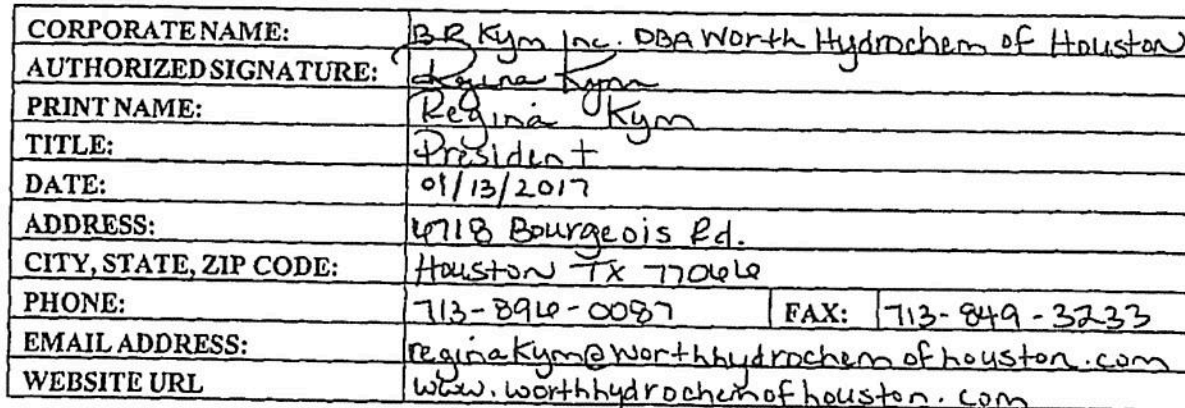 CORPORATE NAME: BR Kym Inc. DBA Worth Hydrochem of Houston
AUTHORIZED SIGNATURE: Regina Kym
PRINT NAME: Regina Kym
TITLE: President
DATE: 01/13/2017
ADDRESS: 6718 Bourgeois Rd.
CITY, STATE, ZIP CODE: Houston TX 77066
PHONE: 713-896-0087 FAX: 713-849-3233
EMAIL ADDRESS: reginakym@worthhydrochemofhouston.com
WEBSITE URL www.worthhydrochemofhouston.com